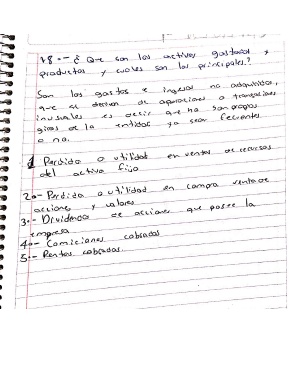 18.- ¿ Que son los activos gastos y
productos y cuales son los principales.?
Son los gastos e ingreso no adquiridos,
que se derivan de operaciones o transaciones
inusuales es decir que no son propios
giros de la entidad ya sean fecuentes
o no.
1 Perdida o utilidad en ventas de recursos
del activo fijo
2.- Perdida o utilidad en compra venta de
acciones y valores
3.- Dividendo de acciones que posee la
empresa
4.- Comiciones cobradas
5.- Rentas cobradas.